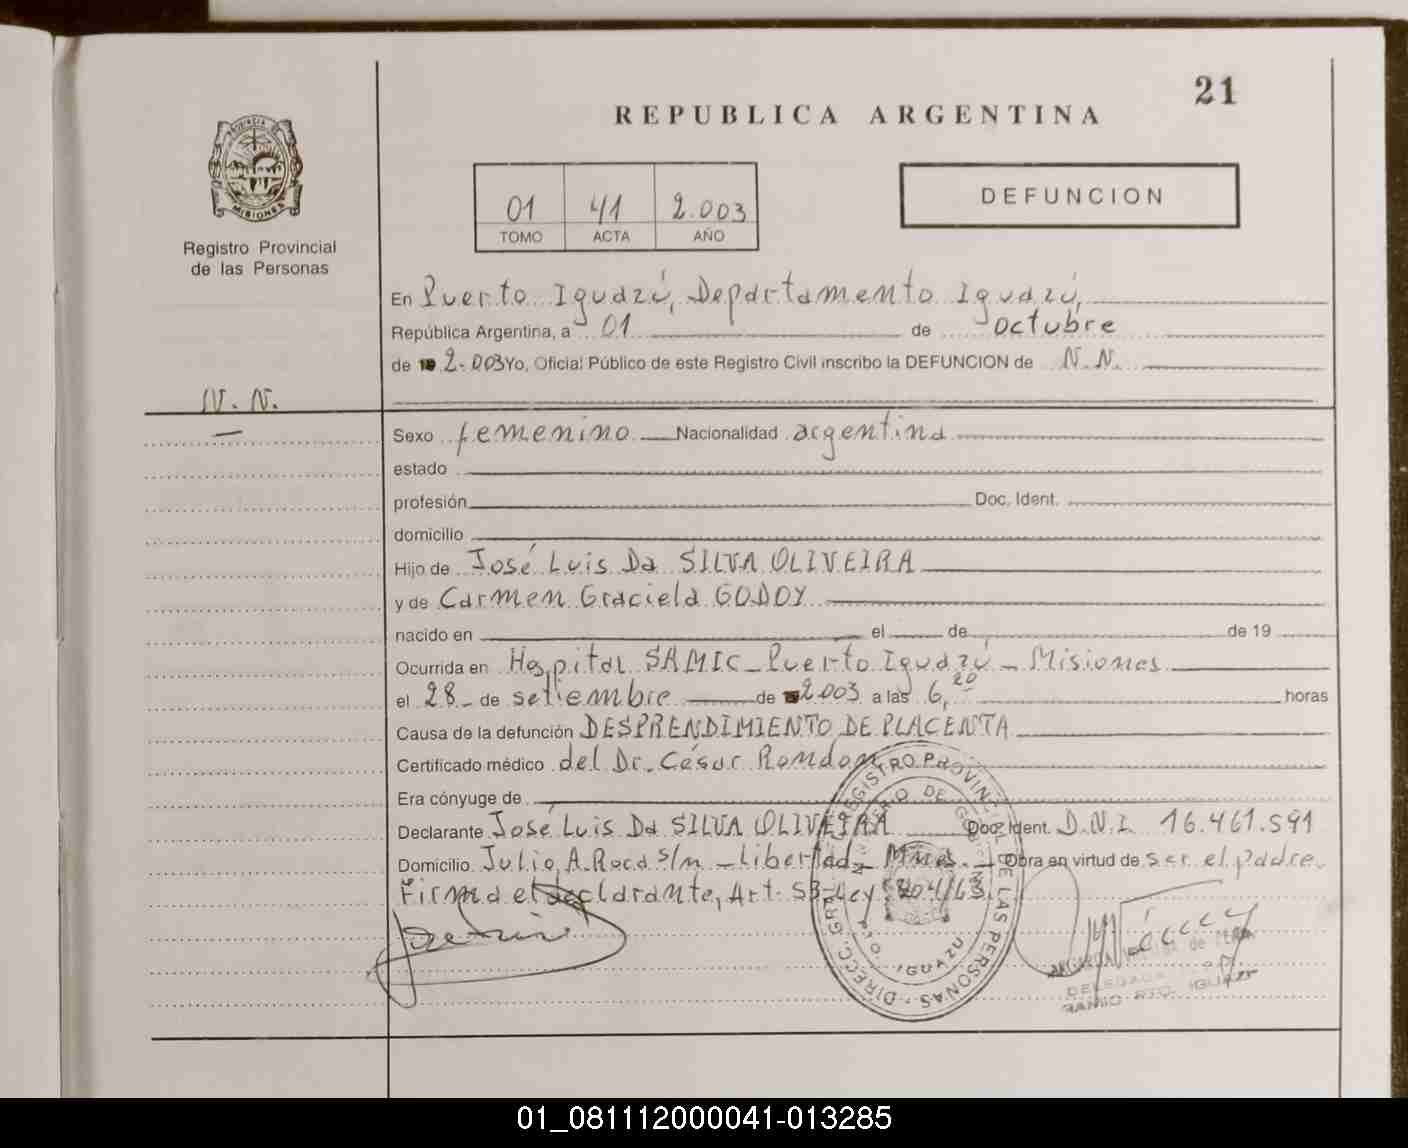 21
REPUBLICA ARGENTINA
PROVINCIA DE
MISIONES
Registro Provincial
de las Personas
01 41 2.003
TOMO ACTA AÑO
DEFUNCION
En Puerto Iguazú, Departamento Iguazú,
República Argentina, a 01 de octubre
de 19 2.003 Yo, Oficial Público de este Registro Civil inscribo la DEFUNCION de N.N.
N. N.
Sexo femenino Nacionalidad argentina
estado
profesión Doc. Ident.
domicilio
Hijo de José Luis Da SILVA OLIVEIRA
y de Carmen Graciela GODOY
nacido en el de de 19
Ocurrida en Hospital SAMIC - Puerto Iguazú - Misiones
el 28 - de setiembre de 2003 a las 6,20 horas
Causa de la defunción DESPRENDIMIENTO DE PLACENTA
Certificado médico del Dr. César Rondon
Era cónyuge de
Declarante José Luis Da SILVA OLIVEIRA Doc. Ident. D.N.I. 16.461.591
Domicilio Julio A. Roca s/n - Libertad - Mnes. - Obra en virtud de ser el padre.
Firma el declarante, Art. 53 - Ley
DIRECC. GRAL. REGISTRO PROVINCIAL DE LAS PERSONAS
MINISTERIO DE GOB.
PTO. IGUAZU
DELEGADA
PTO. IGUAZU
01_081112000041-013285